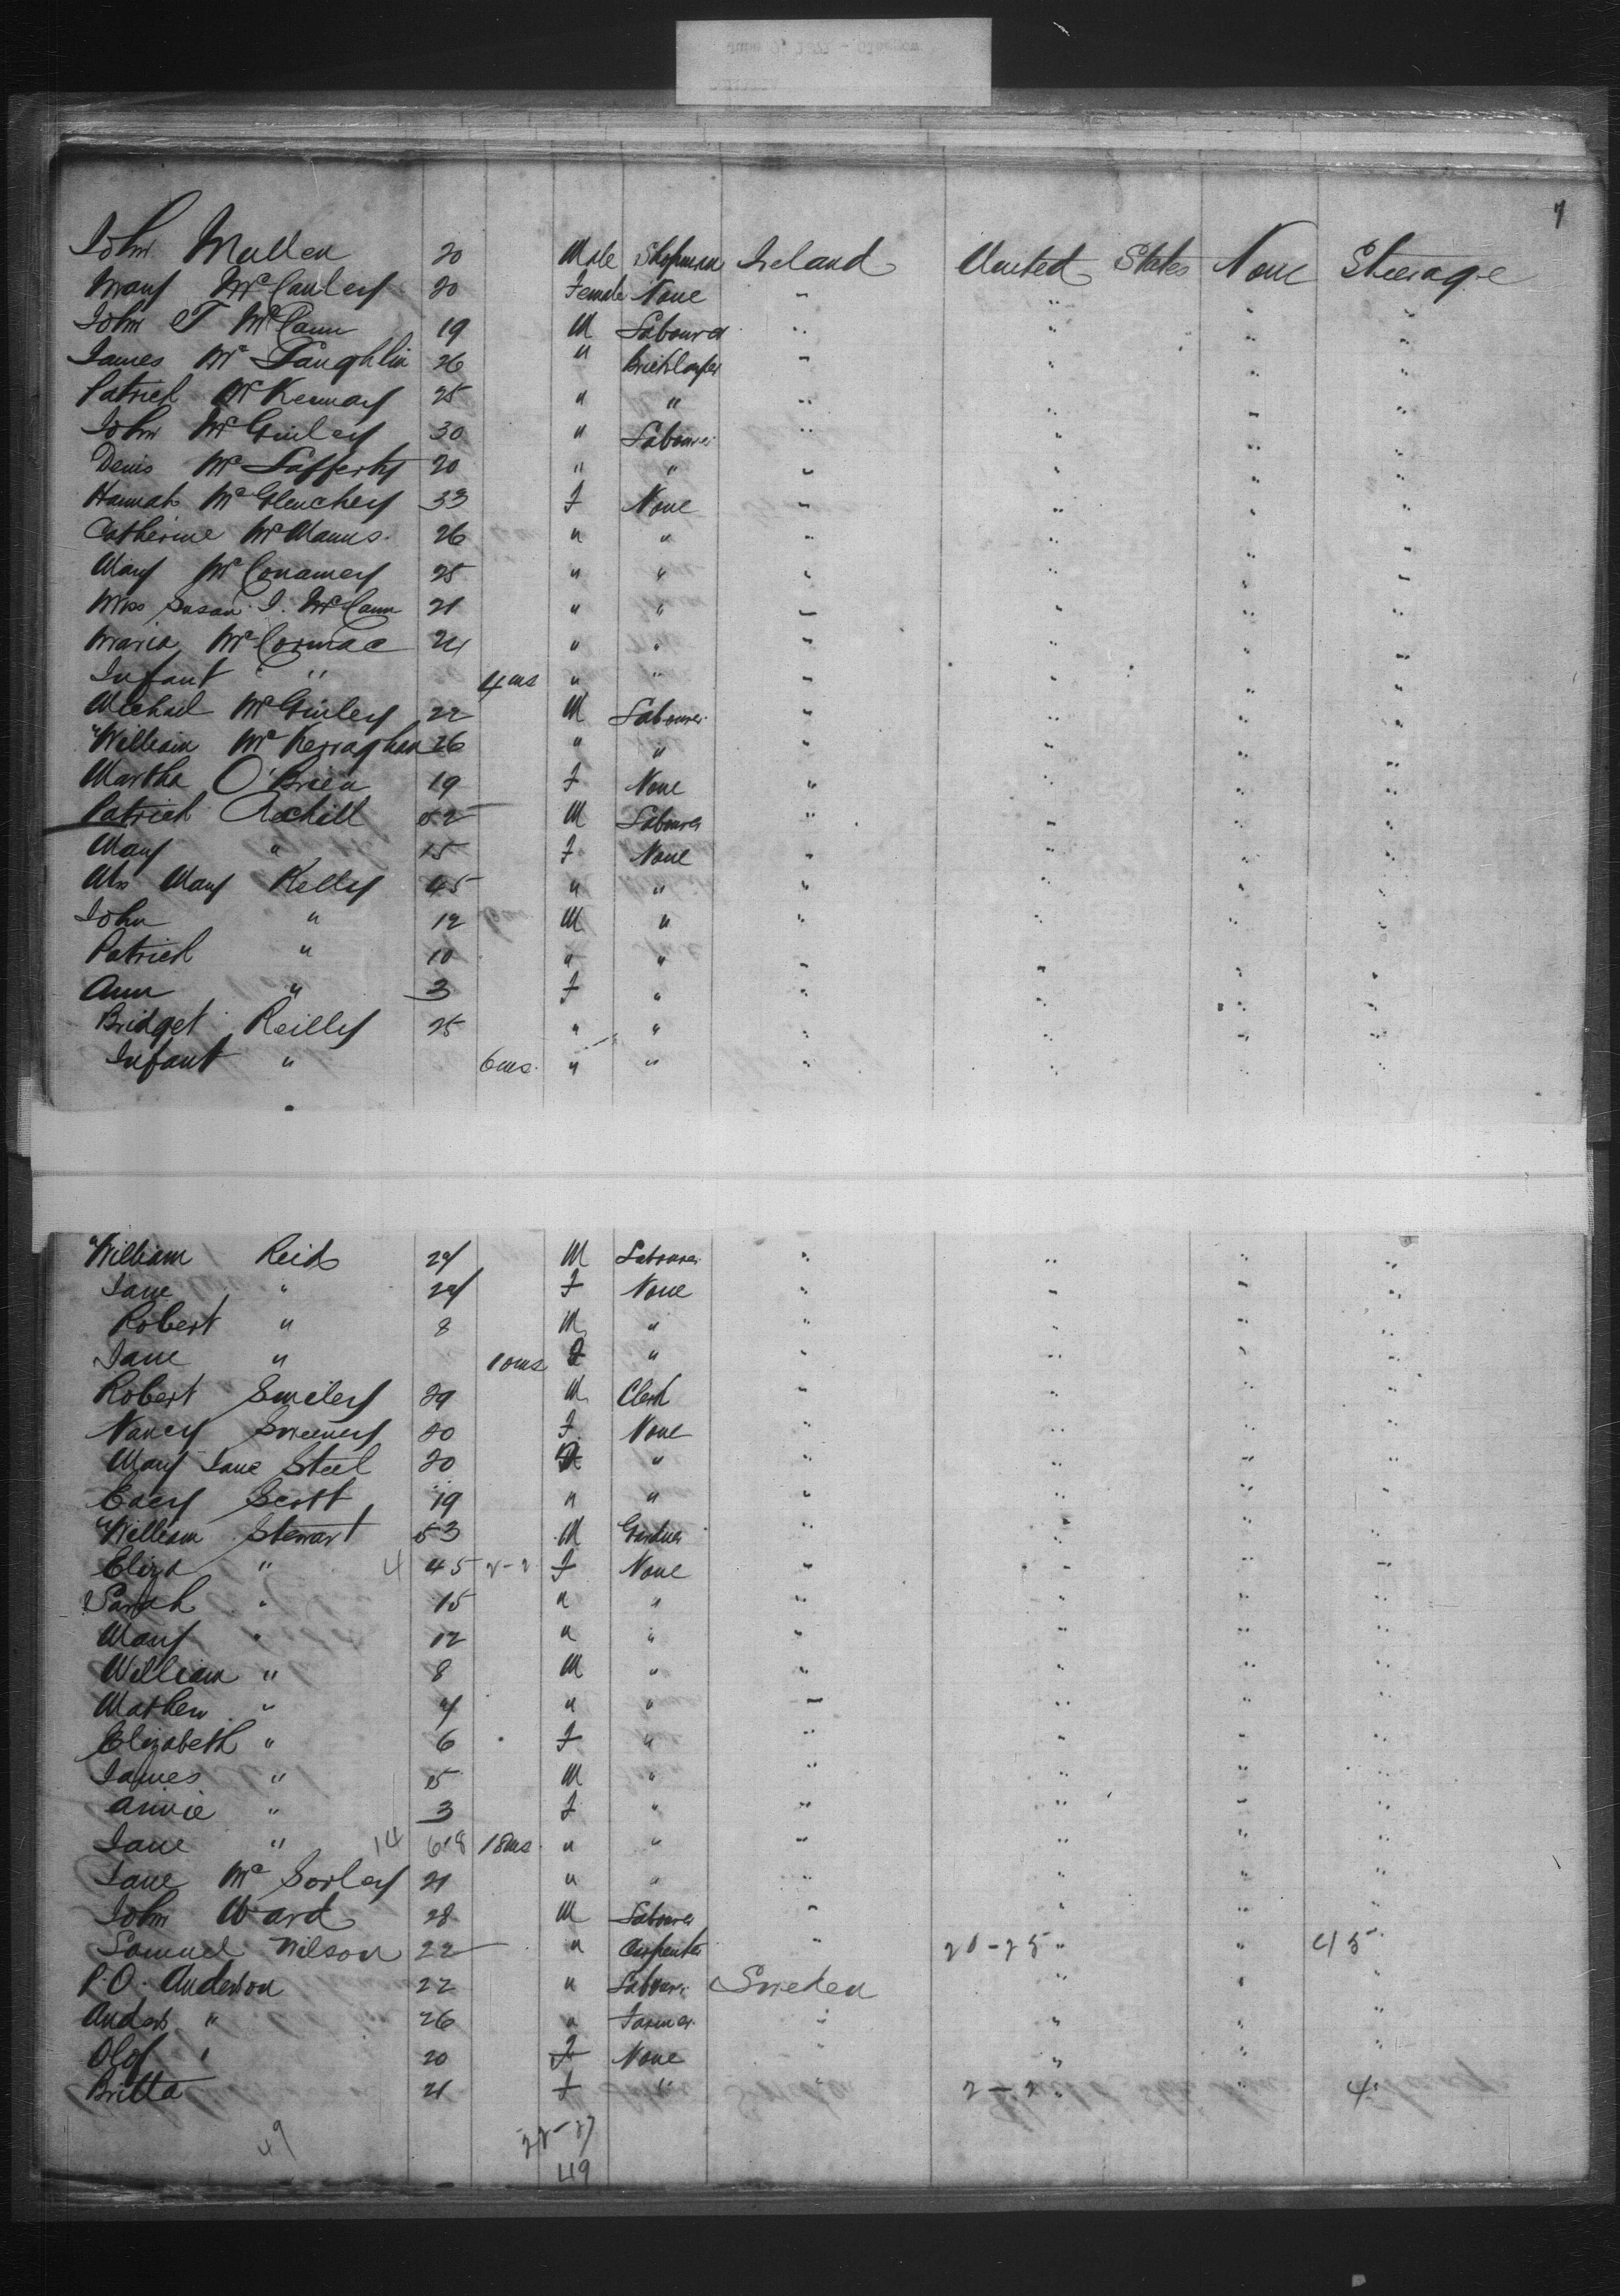 7
John Mullen 20 Male Shopman Ireland United States None Steerage
Mary McCauley 20 Female None " " " "
John T McCann 19 M Labourer " " " "
James McLaughlin 26 " Bricklayer " " " "
Patrick McKennay 25 " " " " " "
John McGinley 30 " Labourer " " " "
Denis McLafferty 20 " " " " " "
Hannah McGlenchey 33 F None " " " "
Catherine McManus 26 " " " " " "
Mary McConamey 25 " " " " " "
Mrs Susan J. McCann 21 " " " " " "
Maria McCormac 24 " " " " " "
Infant " 4ms " " " " " "
Michael McGinley 22 M Labourer " " " "
William McKerraghan 26 " " " " " "
Martha O'Brien 19 F None " " " "
Patrick 52 M Labourer " " " "
Mary " 15 F None " " " "
Mrs Mary Kelly 45 " " " " " "
John " 12 M " " " " "
Patrick " 10 " " " " " "
Ann " 3 F " " " " "
Bridget Reilly 25 " " " " " "
Infant " 6ms " " " " " "
William Reid 24 M Labourer " " " "
Jane " 24 F None " " " "
Robert " 8 M " " " " "
Jane " 10ms F " " " " "
Robert Smiley 29 M Clerk " " " "
Nancy Sweeney 20 F None " " " "
Mary Jane Steel 20 " " " " "
Scott 19 " " " " " "
William Stewart 53 M Gardner " " " "
Eliza " 4 45 2-2 F None " " " "
Sarah " 15 " " " " " "
Mary " 12 " " " " " "
William " 8 M " " " " "
Mathew " " " " " " "
Elizabeth " 6 F " " " " "
James " 5 M " " " " "
Annie " 3 F " " " " "
Jane " 14 618 18ms " " " " " "
Jane McSorley 21 " " " " " "
John Ward 28 M Labourer " " " "
Samuel Wilson 22 " Carpenter " 20-25 " " 45
P.O. Anderson 22 " Labourer Sweden " " "
Anders " 26 " Farmer " " " "
Olof " 20 F None " " " "
Britta 21 F " " 2-2 " " 4
49 22-27
49